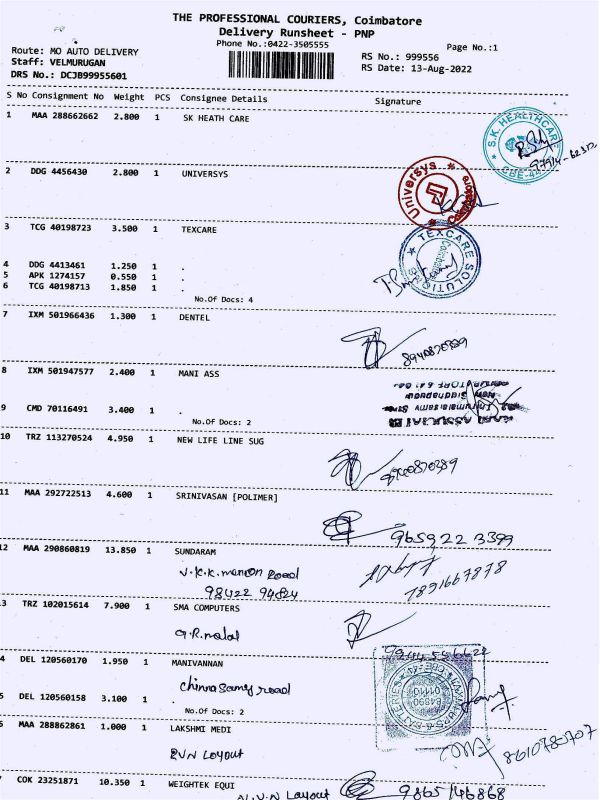 THE PROFESSIONAL COURIERS, Coimbatore
Delivery Runsheet - PNP
Phone No.:0422-3505555
Page No.:1
Route: MO AUTO DELIVERY
Staff: VELMURUGAN
DRS No.: DCJB99955601
RS No.: 999556
RS Date: 13-Aug-2022
S No Consignment No Weight PCS Consignee Details Signature
1 MAA 288662662 2.800 1 SK HEATH CARE
S.K. HEALTHCAR
2 DDG 4456430 2.800 1 UNIVERSYS
Universys
3 TCG 40198723 3.500 1 TEXCARE
TEXCARE SOLUTIONS
Coimbatore
4 DDG 4413461 1.250 1 .
5 APK 1274157 0.550 1 .
6 TCG 40198713 1.850 1 .
No.Of Docs: 4
7 IXM 501966436 1.300 1 DENTEL
8 IXM 501947577 2.400 1 MANI ASS
9 CMD 70116491 3.400 1 .
No.Of Docs: 2
10 TRZ 113270524 4.950 1 NEW LIFE LINE SUG
11 MAA 292722513 4.600 1 SRINIVASAN [POLIMER]
965922 3399
12 MAA 290860819 13.850 1 SUNDARAM
V.K.K. menon Road
98422 94824
7891667878
3 TRZ 102015614 7.900 1 SMA COMPUTERS
G.R.
4 DEL 120560170 1.950 1 MANIVANNAN
chinna samy road
5 DEL 120560158 3.100 1 .
No.Of Docs: 2
6 MAA 288862861 1.000 1 LAKSHMI MEDI
Layout
8610780707
7 COK 23251871 10.350 1 WEIGHTEK EQUI
N.V.N Layout
9865146868